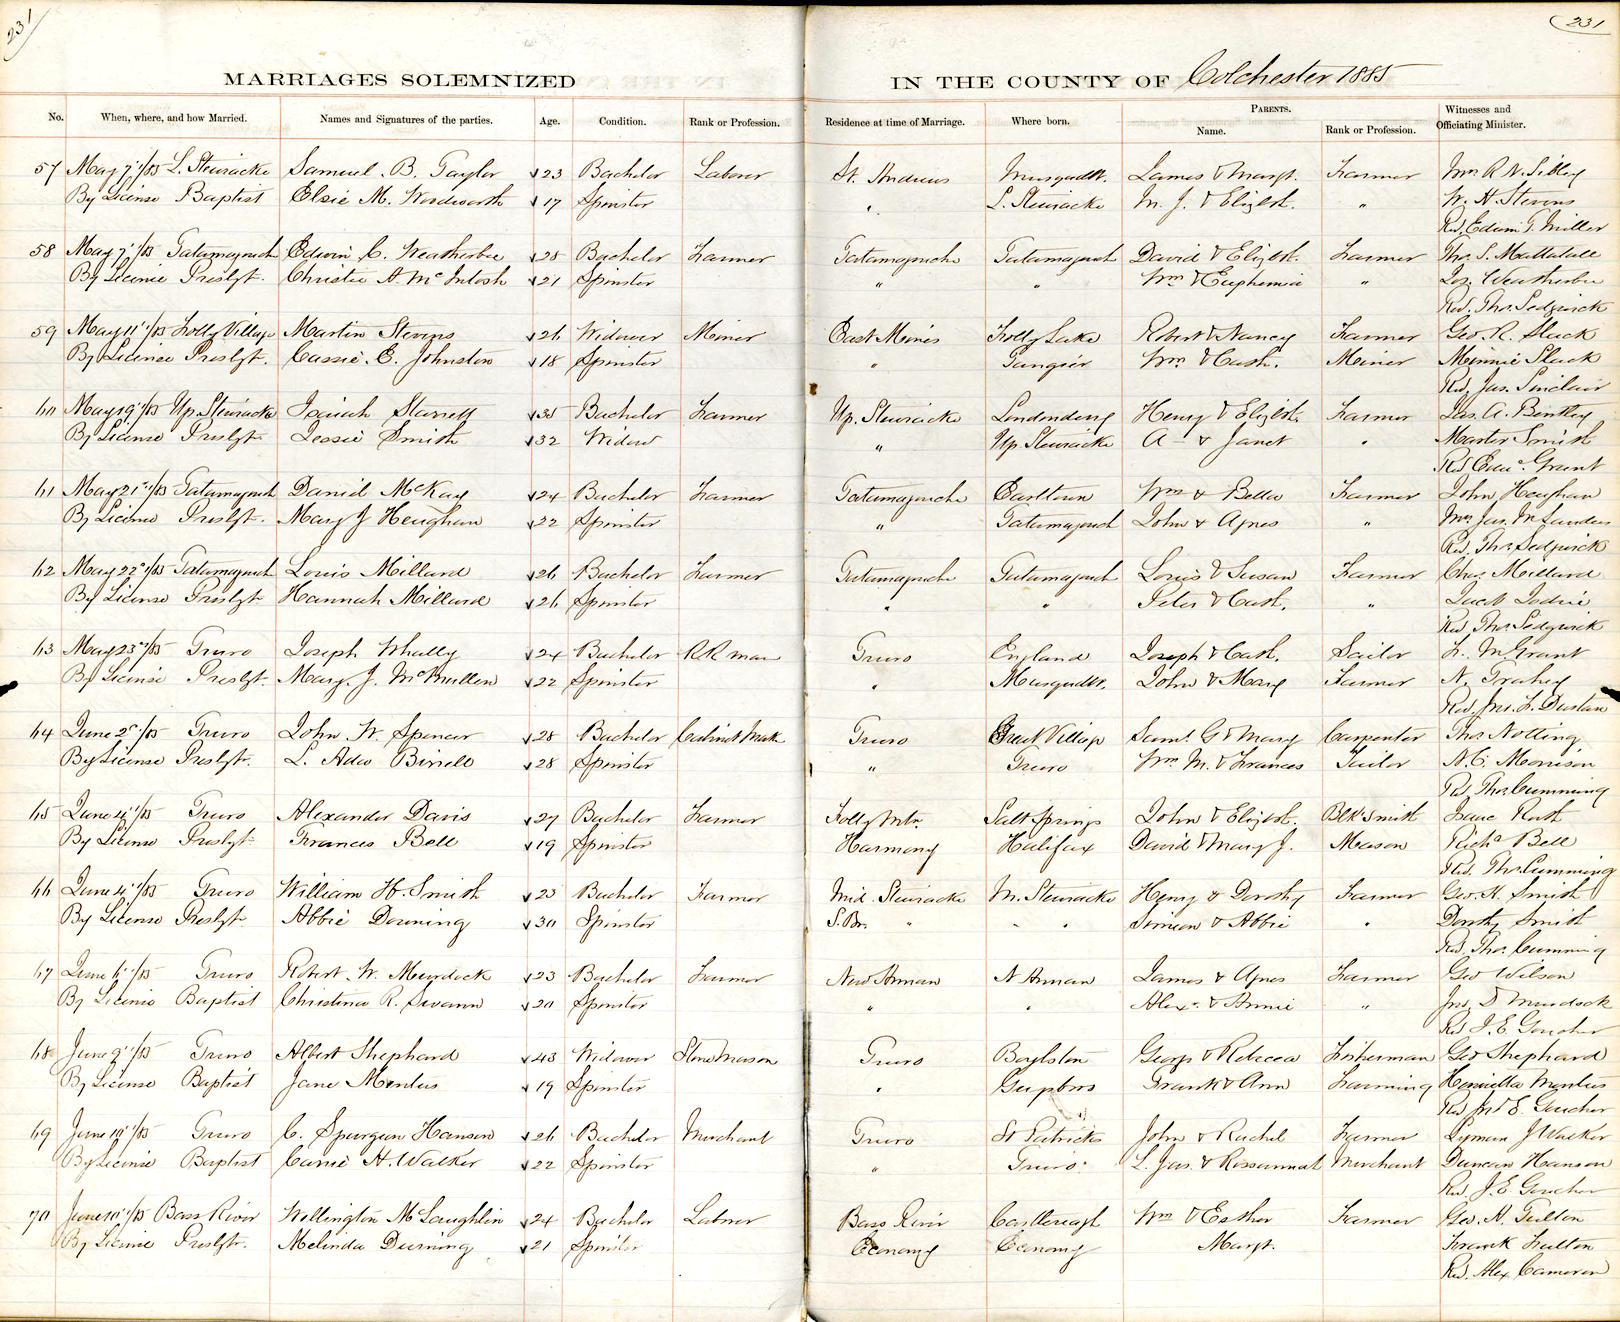 231
231
MARRIAGES SOLEMNIZED IN THE COUNTY OF Colchester 1885
No. When, where, and how Married. Names and Signatures of the parties. Age. Condition. Rank or Profession. Residence at time of Marriage. Where born. PARENTS. Name. Rank or Profession. Witnesses and Officiating Minister.
57 May 7th/85 L. Stewiacke Samuel B. Taylor 23 Bachelor Laborer St. Andrews Musquodt. James & Margt. Farmer Mrs R N. Sibley
By License Baptist Elsie M. Wordworth 17 Spinster " L. Stewiacke M. J. & Elizbth. " W. H. Stevens
Rev. Edwin T. Miller
58 May 7th/85 Tatamagouch Edwin C. Weatherbie 28 Bachelor Farmer Tatamagouche Tatamagouch David & Elizbth. Farmer Thos. S. Mattatall
By License Presbyt. Christie A. McIntosh 21 Spinster " " Wm & Euphemia " Jos. Weatherbie
Rev. Thos. Sedgwick
59 May 11th/85 Folly Village Martin Stevens 26 Widower Miner East Mines Folly Lake Robert & Nancy Farmer Geo R. Slack
By License Presbyt. Cassie E. Johnston 18 Spinster " Tangier Wm & Cath. Miner Minnie Slack
Rev. Jas. Sinclair
60 May 19th/85 Up. Stewiacke Isaiah Starratt 35 Bachelor Farmer Up. Stewiacke Londonderry Henry & Elizbth. Farmer Jas. A. Bentley
By License Presbyt. Jessie Smith 32 Widow " Up. Stewiacke A — & Janet " Martin Smith
Rev. Grant
61 May 21st/85 Tatamagouch Daniel McKay 24 Bachelor Farmer Tatamagouche Earltown Wm & Bella Farmer John Heughan
By License Presbyt. Mary J Heughan 22 Spinster " Tatamagouch John & Agnes " Mrs Jas.
Rev. Thos. Sedgwick
62 May 22d/85 Tatamagouch Louis Millard 26 Bachelor Farmer Tatamagouche Tatamagouch Louis & Susan Farmer Chas. Millard
By License Presbyt. Hannah Millard 26 Spinster " " Peter & Cath. "
Rev. Thos. Sedgwick
63 May 23d/85 Truro Joseph Whally 24 Bachelor R R man Truro England Joseph & Cath. Sailor Grant
By License Presbyt. Mary J. McMullen 22 Spinster " Musquodt. John & Mary Farmer N. Trahey
Rev. Jno. F. Dustan
64 June 2d/85 Truro John W. Spencer 28 Bachelor Cabinet Mak Truro Great Village Saml. G & Mary Carpenter Thos Notting
By License Presbyt. L. Ada Birrell 28 Spinster " Truro Wm M. & Frances Tailor N. C. Morrison
Rev. Thos. Cumming
65 June 4th/85 Truro Alexander Davis 27 Bachelor Farmer Folly Mtn. Salt Springs John & Elizbth. Blk Smith Isaac Roth
By License Presbyt. Frances Bell 19 Spinster Harmony Halifax David & Mary J. Mason Richd Bell
Rev. Thos. Cumming
66 June 4th/85 Truro William H. Smith 23 Bachelor Farmer Mid. Stewiacke M. Stewiacke Henry & Dorothy Farmer Geo. H. Smith
By License Presbyt. Abbie Downing 30 Spinster S. Br. " " " Simeon & Abbie " Dorothy Smith
Rev. Thos. Cumming
67 June 6th/85 Truro Robert W. Murdock 23 Bachelor Farmer New Annan N Annan James & Agnes Farmer Geo Wilson
By License Baptist Christina R. Swann 20 Spinster " " Alexr. & Annie " Jno. D Murdock
Rev J. E. Goucher
68 June 9th/85 Truro Albert Shephard 43 Widower Stone Mason Truro Boylston George & Rebecca Fisherman Geo Shephard
By License Baptist Jane Mentus 19 Spinster " Guysboro Frank & Ann Farming Henrietta Mentus
Rev Jno E. Goucher
69 June 10th/85 Truro C. Spurgeon Hanson 26 Bachelor Merchant Truro St Patricks John & Rachel Farmer Lyman J Walker
By License Baptist Carrie H. Walker 22 Spinster " Truro L. Jas. & Rossannah Merchant Duncan Hanson
Rev. J. E. Goucher
70 June 10th/85 Bass River Wellington McLaughlin 24 Bachelor Laborer Bass River Castlereagh Wm & Esther Farmer Geo. A. Fulton
By License Presbyt. Melinda Durning 21 Spinster Economy Economy Margt. Frank Fulton
Rev. Alex Cameron